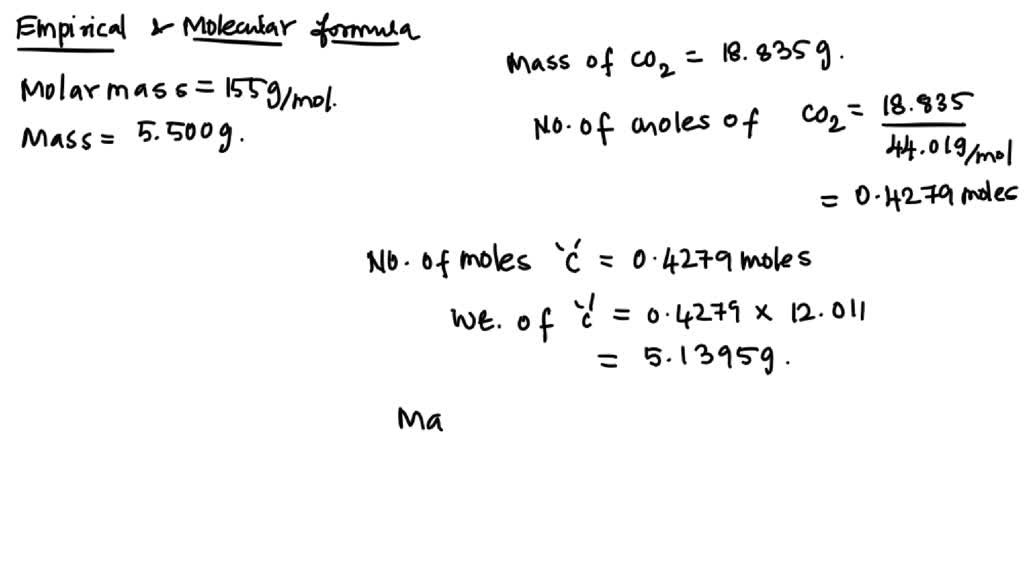 Empirical & Molecular formula
Molar mass = 155g/mol.
Mass = 5.500g.
Mass of CO2 = 18.835g.
No. of moles of CO2 = 18.835
44.01g/mol
= 0.4279 moles
No. of moles 'C' = 0.4279 moles
Wt. of 'C' = 0.4279 × 12.011
= 5.1395g.
Ma